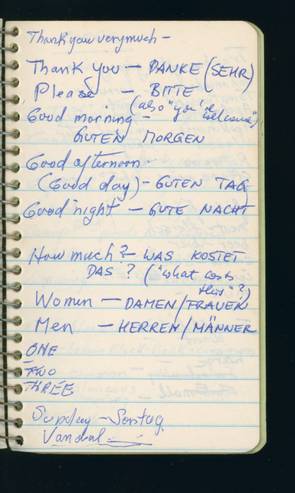 Thank you very much -
Thank you - DANKE (SEHR)
Please - BITTE
(also "you're welcome")
Good morning -
GUTEN MORGEN
Good afternoon -
(Good day) - GUTEN TAG
Good night - GUTE NACHT
How much? - WAS KOSTET
DAS? ("what costs
this"?)
Women - DAMEN/FRAUEN
Men - HERREN/MÄNNER
ONE
TWO
THREE
Sunday - Sontag